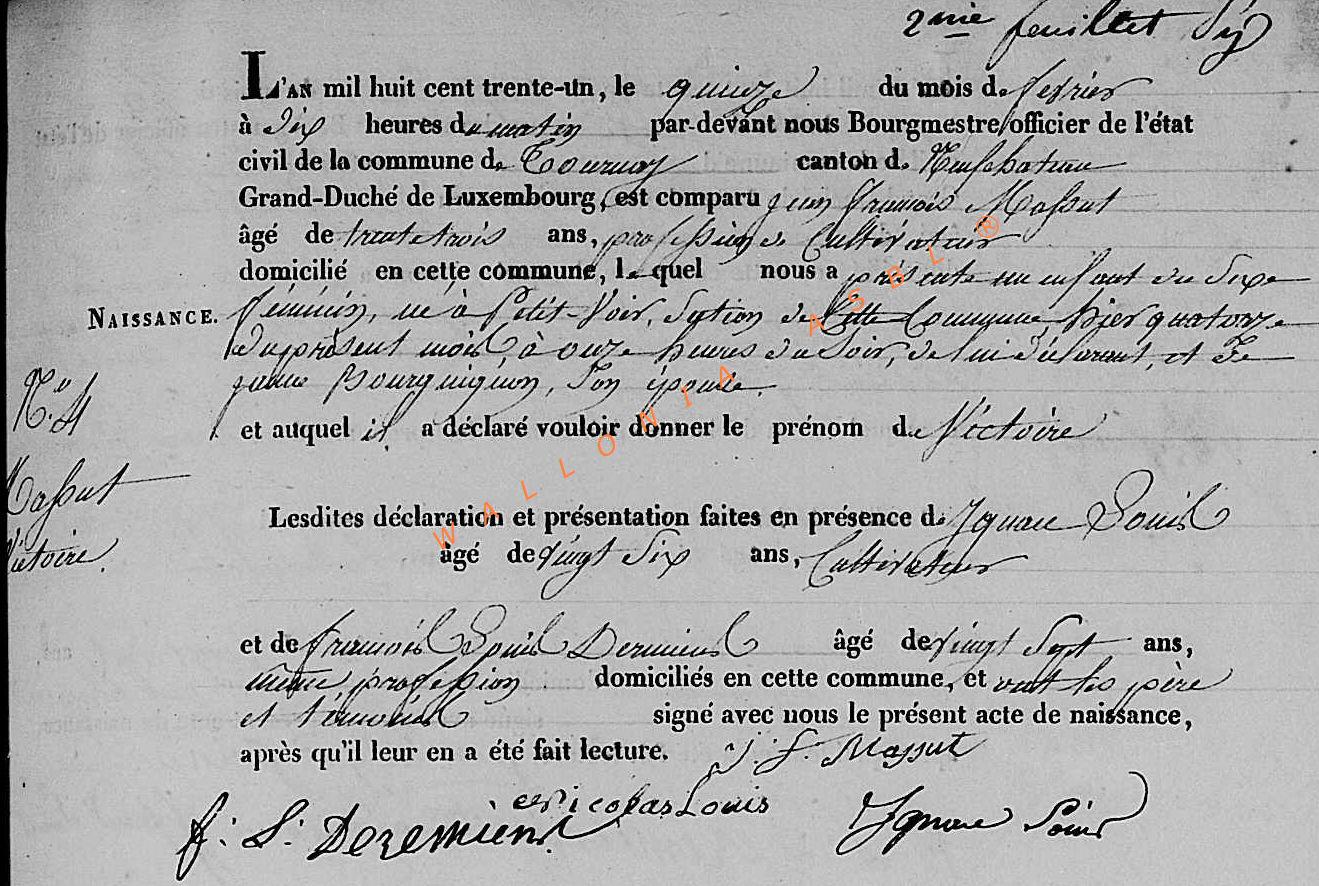 2mie feuillet
L'AN mil huit cent trente-un, le quinze du mois de fevrier
à dix heures du matin par-devant nous Bourgmestre, officier de l'état
civil de la commune de Tournay canton de Neufchateau
Grand-Duché de Luxembourg, est comparu jean francois Massut
âgé de trente trois ans, profession de Cultivateur
domicilié en cette commune, le quel nous a présenté un enfant du Sexe
NAISSANCE. féminin, né à Petit-Voir, Section de Cette Commune, hier quatorze
du présent mois, à onze heures du Soir, de lui déclarant, et de
jeanne Bourguignon, Son épouse.
N.o 4
et auquel il a déclaré vouloir donner le prénom de Victoire
Massut
Victoire.
Lesdites déclaration et présentation faites en présence de Ignace Louis
âgé de vingt Six ans, Cultivateur
et de francois Louis Deremiens âgé de vingt Sept ans,
même profession domiciliés en cette commune, et ont les père
et temoins signé avec nous le présent acte de naissance,
après qu'il leur en a été fait lecture. J. f. Massut
Nicolas Louis
f. L. Deremiens Ignace Louis
WALLONIA ASBL ®